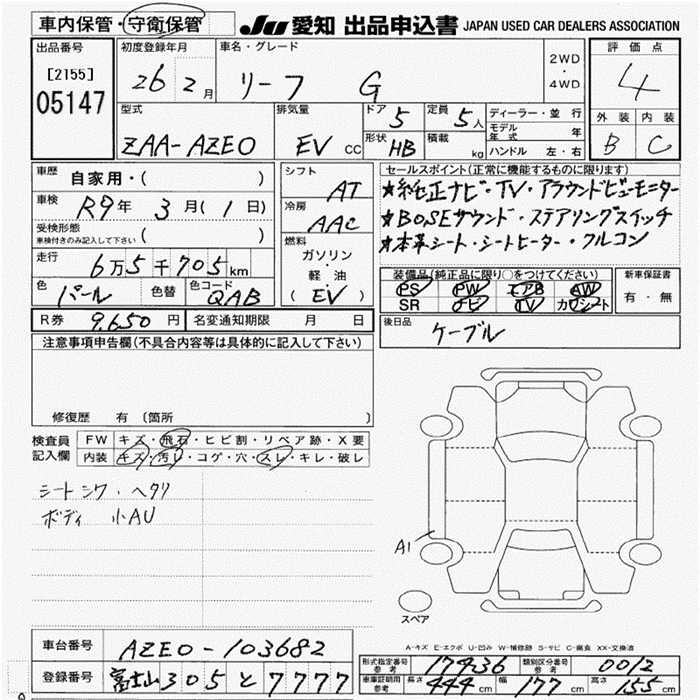 車内保管・守衛保管 JU 愛知 出品申込書 JAPAN USED CAR DEALERS ASSOCIATION
出品番号 [2155] 05147
初度登録年月 26 2月
車名・グレード リーフ G
2WD・4WD
評価点 4
外装 B 内装 C
型式 ZAA-AZE0
排気量 EV CC
ドア 5 定員 5人
形状 HB 積載 kg
ディーラー・並行
モデル年式 年
ハンドル 左・右
車歴 自家用・( )
車検 R9年 3月(1日)
受検形態 車検付きのみ記入して下さい ( )
走行 6万5千705km
色 パール 色替 色コード QAB
シフト AT
冷房 AAC
燃料 ガソリン・軽油 (EV)
セールスポイント(正常に機能するものに限ります)
★純正ナビ・TV・アラウンドビューモニター
★BOSEサウンド・ステアリングスイッチ
★本革シート・シートヒーター・フルコン
装備品(純正品に限り○をつけてください)
PS PW エアB AW
SR ナビ TV カワシート
新車保証書 有・無
R券 9,650円 名変通知期限 月 日
後日品 ケーブル
注意事項申告欄(不具合内容等は具体的に記入して下さい)
修復歴 有 〔箇所 〕
検査員記入欄
FW キズ・飛石・ヒビ割・リペア跡・X要
内装 キズ・汚レ・コゲ・穴・スレ・キレ・破レ
シートシワ・ヘタリ
ボディ 小AU
A1
スペア
A-キズ E-エクボ U-凹み W-補修跡 S-サビ C-腐食 XX-交換済
車台番号 AZE0-103682
登録番号 富士山 305 と 7777
形式指定番号 参考 17436 類別区分番号 参考 0012
車庫証明用 参考 長さ 444cm 幅 177cm 高さ 155cm